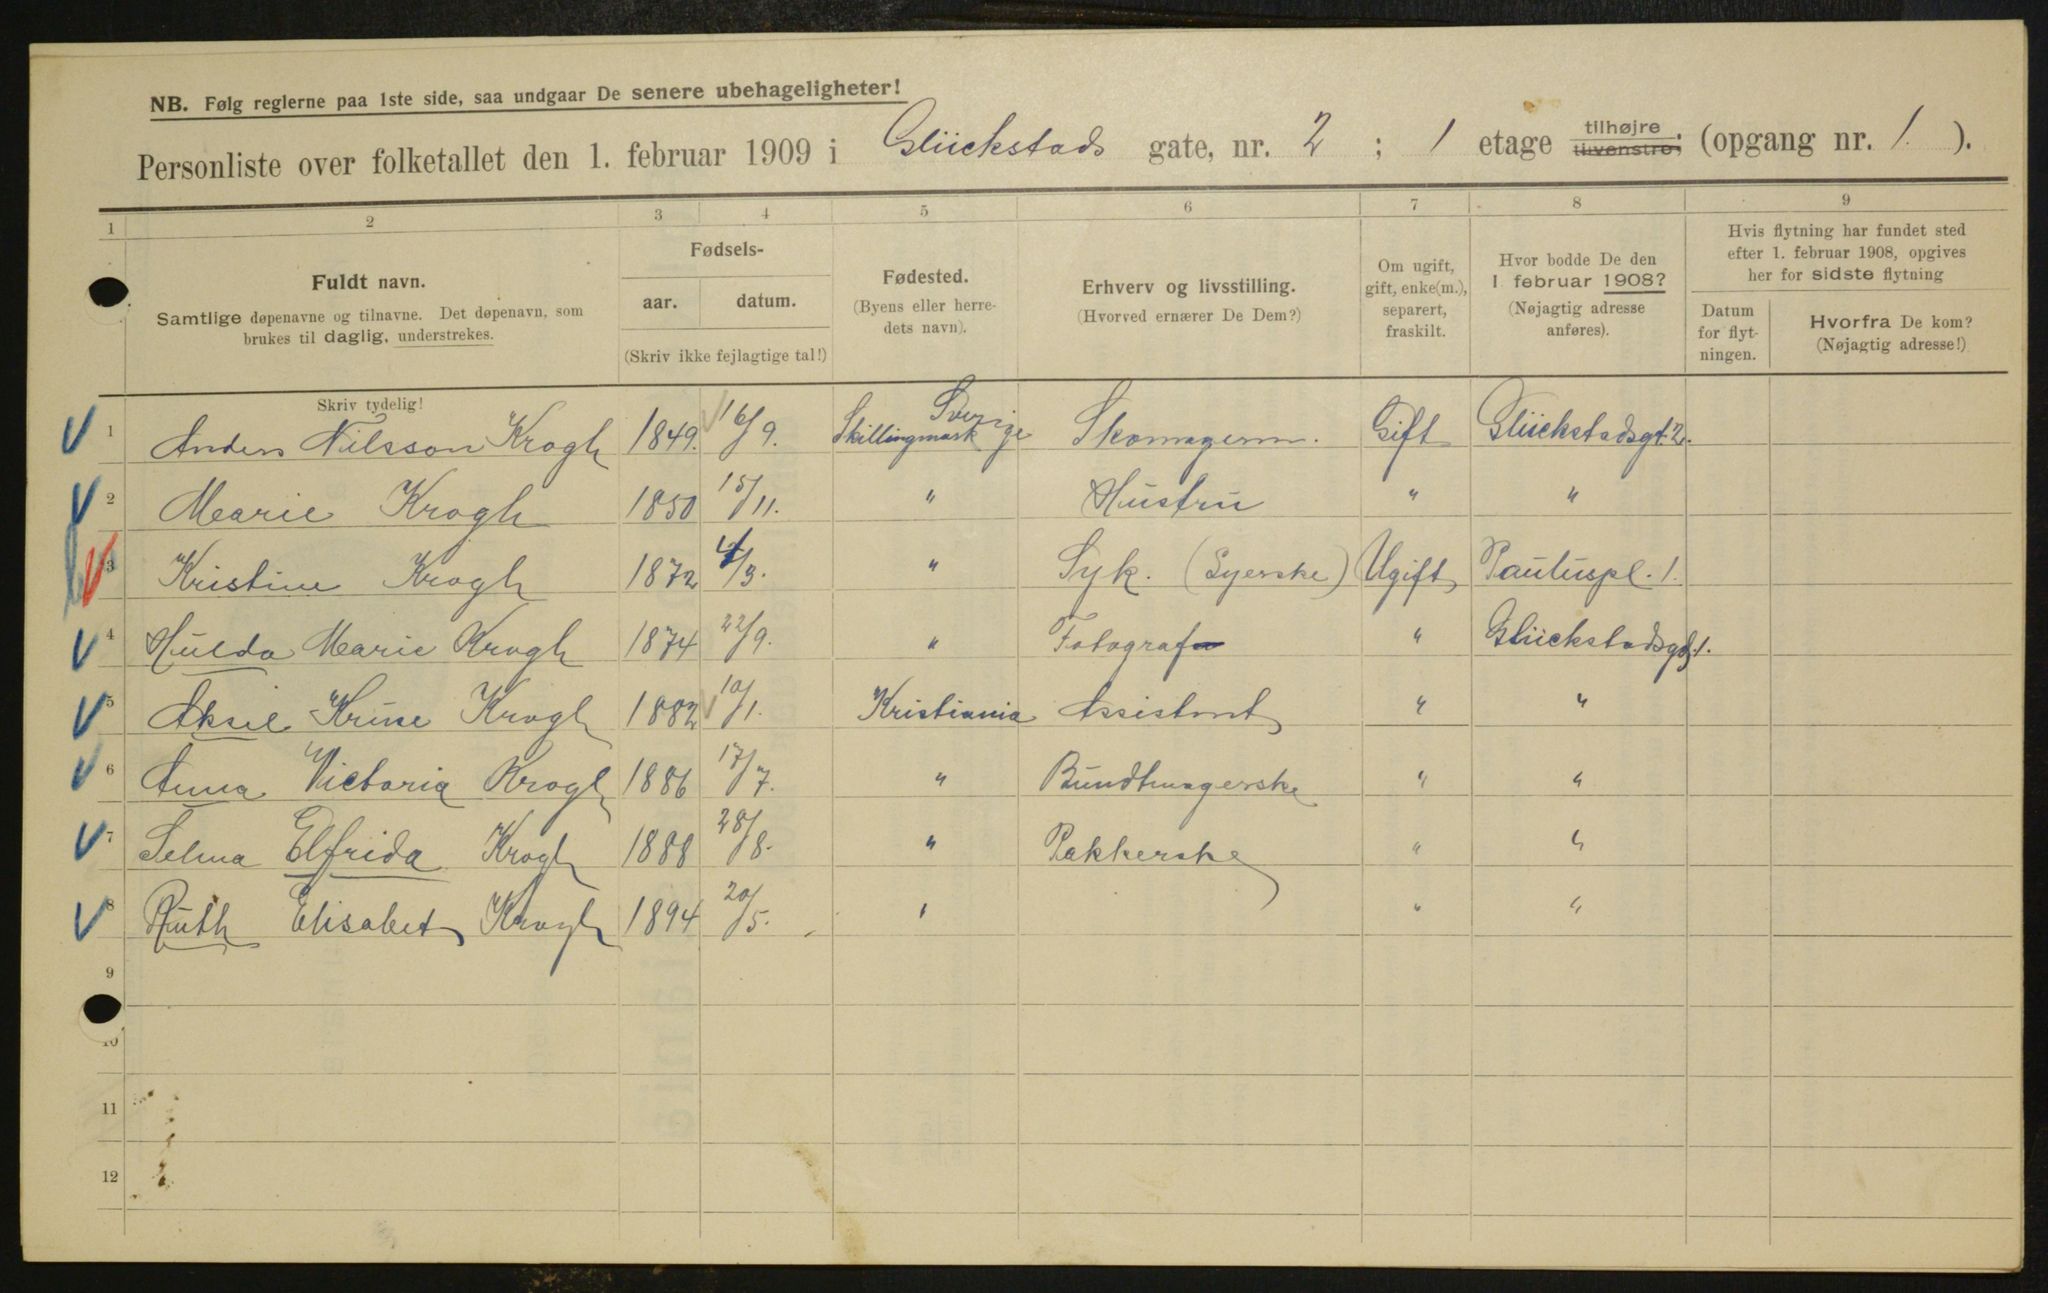 NB. Følg reglerne paa 1ste side, saa undgaar De senere ubehageligheter!
Personliste over folketallet den 1. februar 1909 i Glückstads gate, nr. 2 ; 1 etage tilhøjre, tilvenstre, (opgang nr. 1. ).
1 2 3 4 5 6 7 8 9
Fuldt navn.
Samtlige døpenavne og tilnavne. Det døpenavn, som
brukes til daglig, understrekes.
Skriv tydelig!
Fødsels-
aar. datum.
(Skriv ikke fejlagtige tal!)
Fødested.
(Byens eller herre-
dets navn).
Erhverv og livsstilling.
(Hvorved ernærer De Dem?)
Om ugift,
gift, enke(m.),
separert,
fraskilt.
Hvor bodde De den
1 februar 1908?
(Nøjagtig adresse
anføres).
Hvis flytning har fundet sted
efter 1. februar 1908, opgives
her for sidste flytning
Datum
for flyt-
ningen.
Hvorfra De kom?
(Nøjagtig adresse!)
1 Anders Nilsson Krogh 1849. 16/9. Skillingmark Sverige Skomagerm. Gift Glückstadsgt. 2.
2 Marie Krogh 1850 15/11. " Hustru " "
3 Kristine Krogh 1872 4/3. " Syk. (Syerske) Ugift Pauluspl. 1.
4 Hulda Marie Krogh 1874 22/9. " Fotograf " Glückstadsgd. 1.
5 Aksel Kruse Krogh 1882 10/1. Kristiania Assistent " "
6 Anna Victoria Krogh 1886 17/7. " Bundtmagerske " "
7 Selma Elfrida Krogh 1888 28/8. " Pakkerske " "
8 Ruth Elisabet Krogh 1894 20/5. " " "
9
10
11
12